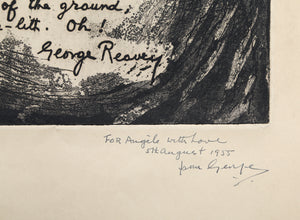 of the ground,
-litt. Oh!
George Reavey
For Angèle with Love
5th August 1955
from George